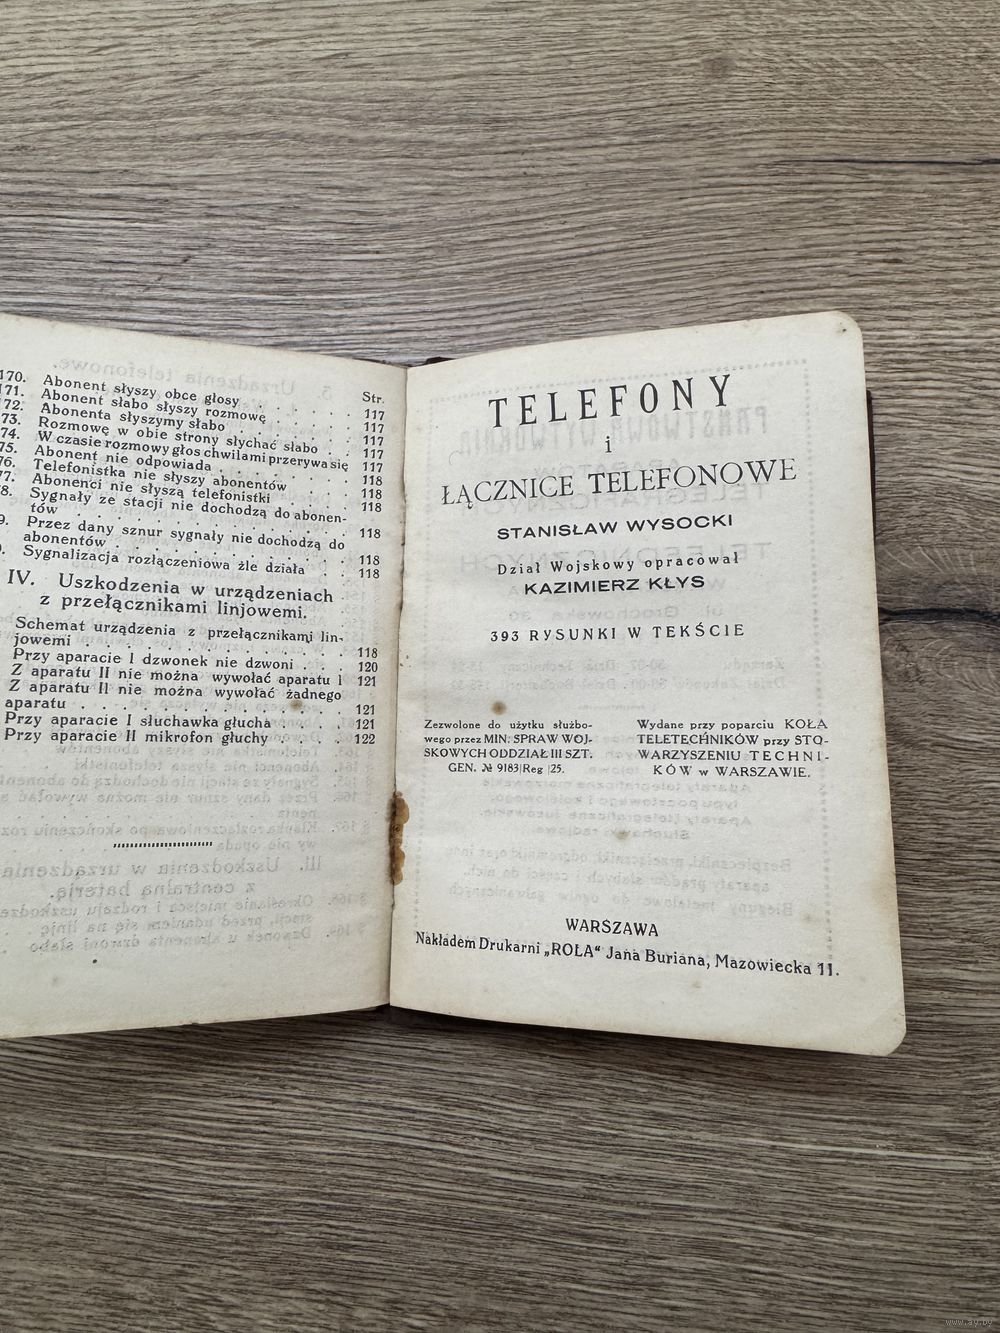 Str.
170. Abonent słyszy obce głosy . . . . . . 117
171. Abonent słabo słyszy rozmowę . . . . 117
172. Abonenta słyszymy słabo . . . . . . 117
73. Rozmowę w obie strony słychać słabo . . 117
74. W czasie rozmowy głos chwilami przerywa się 117
75. Abonent nie odpowiada . . . . . . . 118
76. Telefonistka nie słyszy abonentów . . . 118
77. Abonenci nie słyszą telefonistki . . . . 118
8. Sygnały ze stacji nie dochodzą do abonen-
tów . . . . . . . . . . . . 118
9. Przez dany sznur sygnały nie dochodzą do
abonentów . . . . . . . . . . 118
Sygnalizacja rozłączeniowa źle działa . . 118
IV. Uszkodzenia w urządzeniach
z przełącznikami linjowemi.
Schemat urządzenia z przełącznikami lin-
jowemi . . . . . . . . . . . 118
Przy aparacie I dzwonek nie dzwoni . . . 120
Z aparatu II nie można wywołać aparatu I 121
Z aparatu II nie można wywołać żadnego
aparatu . . . . . . . . . . . 121
Przy aparacie I słuchawka głucha . . . . 121
Przy aparacie II mikrofon głuchy . . . . 122
TELEFONY
i
ŁĄCZNICE TELEFONOWE
STANISŁAW WYSOCKI
Dział Wojskowy opracował
KAZIMIERZ KŁYS
393 RYSUNKI W TEKŚCIE
Zezwolone do użytku służbo-
wego przez MIN. SPRAW WOJ-
SKOWYCH ODDZIAŁ III SZT.
GEN. № 9183|Reg |25.
Wydane przy poparciu KOŁA
TELETECHNIKÓW przy STO-
WARZYSZENIU TECHNI-
KÓW w WARSZAWIE.
WARSZAWA
Nakładem Drukarni „ROLA“ Jana Buriana, Mazowiecka 11.
www.ay.by